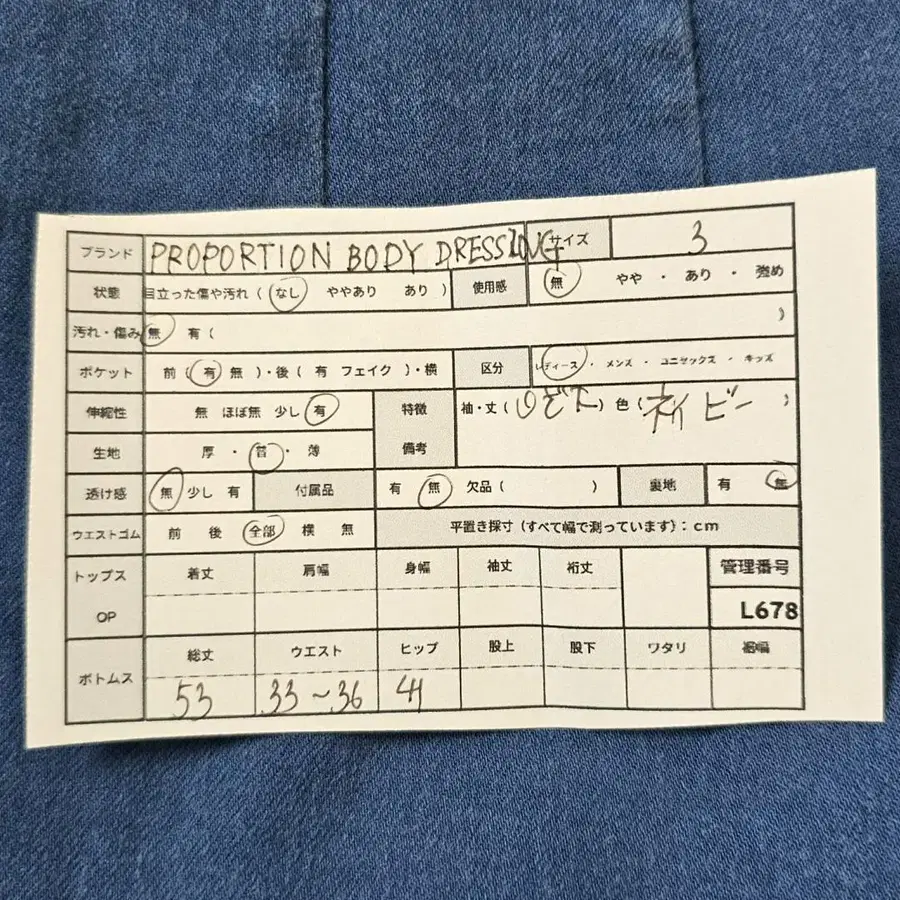 ブランド PROPORTION BODY DRESSING サイズ 3
状態 目立った傷や汚れ ( なし ややあり あり ) 使用感 無 やや ・ あり ・ 強め
汚れ・傷み 無 有 ( )
ポケット 前 ( 有 無 )・後 ( 有 フェイク )・横 区分 レディース ・ メンズ ・ ユニセックス ・ キッズ
伸縮性 無 ほぼ無 少し 有 特徴 袖・丈 ( ひざ下 ) 色 ( ネイビー )
生地 厚 ・ 普 ・ 薄 備考
透け感 無 少し 有 付属品 有 無 欠品 ( ) 裏地 有 無
ウエストゴム 前 後 全部 横 無 平置き採寸 (すべて幅で測っています) : cm
トップス 着丈 肩幅 身幅 袖丈 裄丈 管理番号
OP L678
ボトムス 総丈 ウエスト ヒップ 股上 股下 ワタリ 裾幅
53 33〜36 41